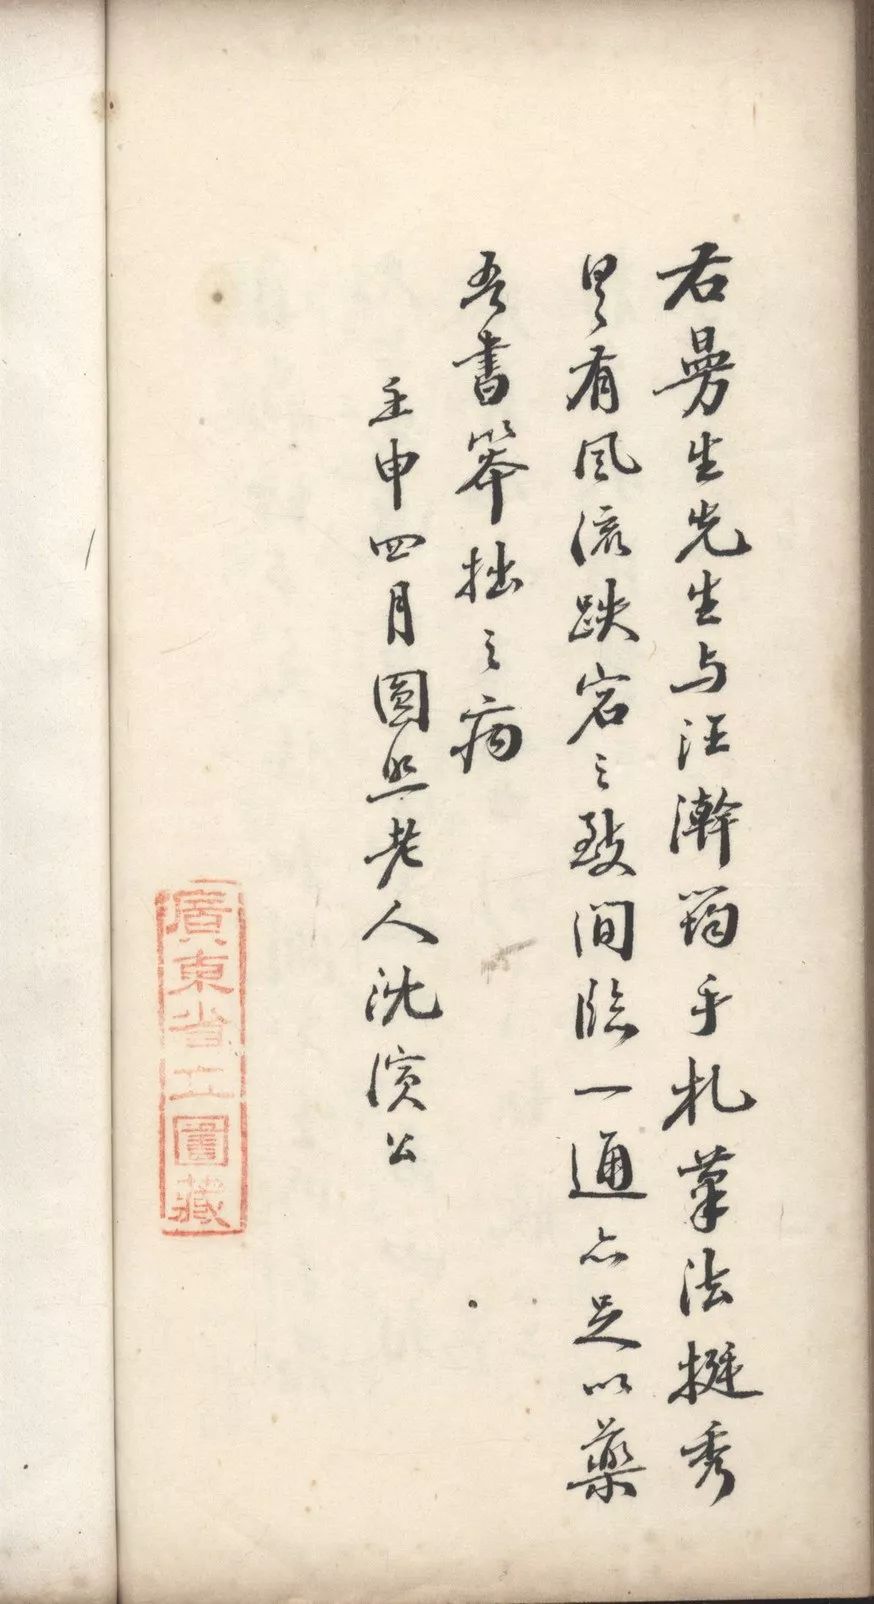 右曼生先生与汪澣筠手札筆法挺秀
具有風流跌宕之致间臨一通亦足以藥
吾書笨拙之病
壬申四月圓照老人沈演公
廣東省立圖藏